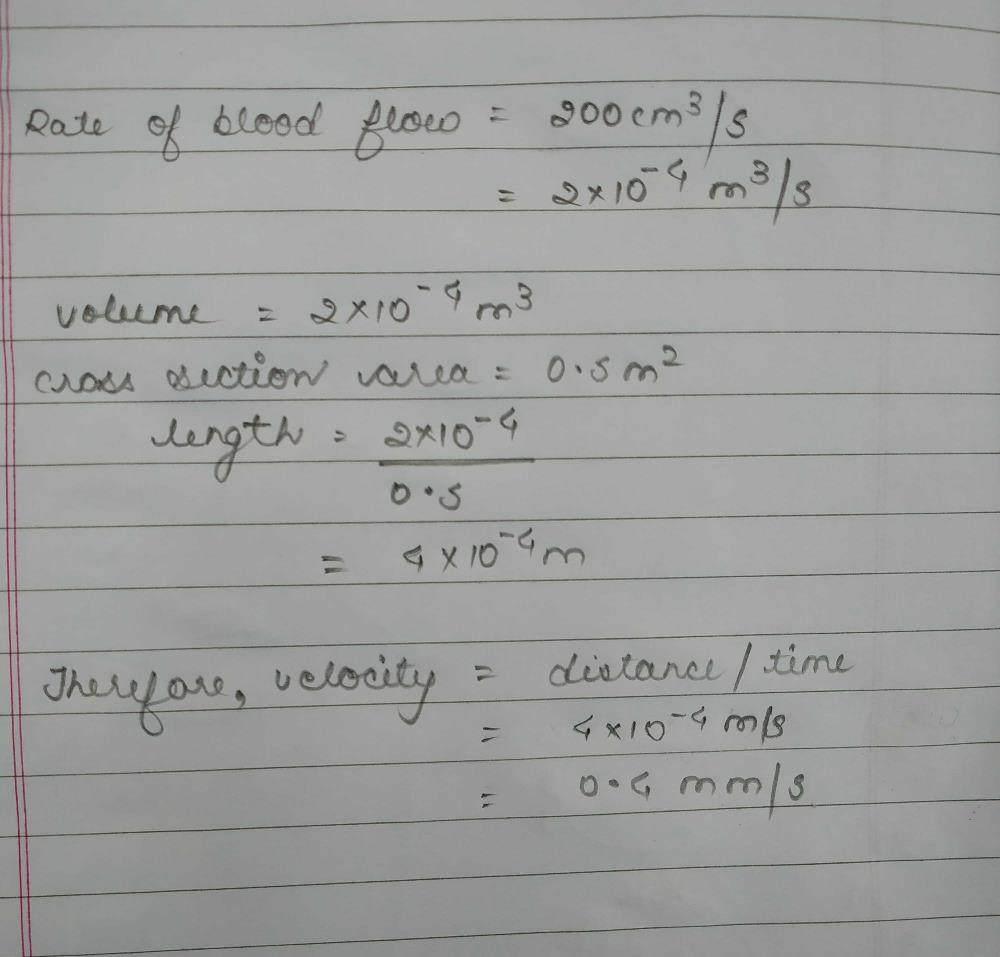 Rate of blood flow = 200cm³/s
= 2×10⁻⁴ m³/s
volume = 2×10⁻⁴ m³
cross section area = 0.5 m²
length = 2×10⁻⁴
0.5
= 4×10⁻⁴ m
Therefore, velocity = distance/time
= 4×10⁻⁴ m/s
= 0.4 mm/s